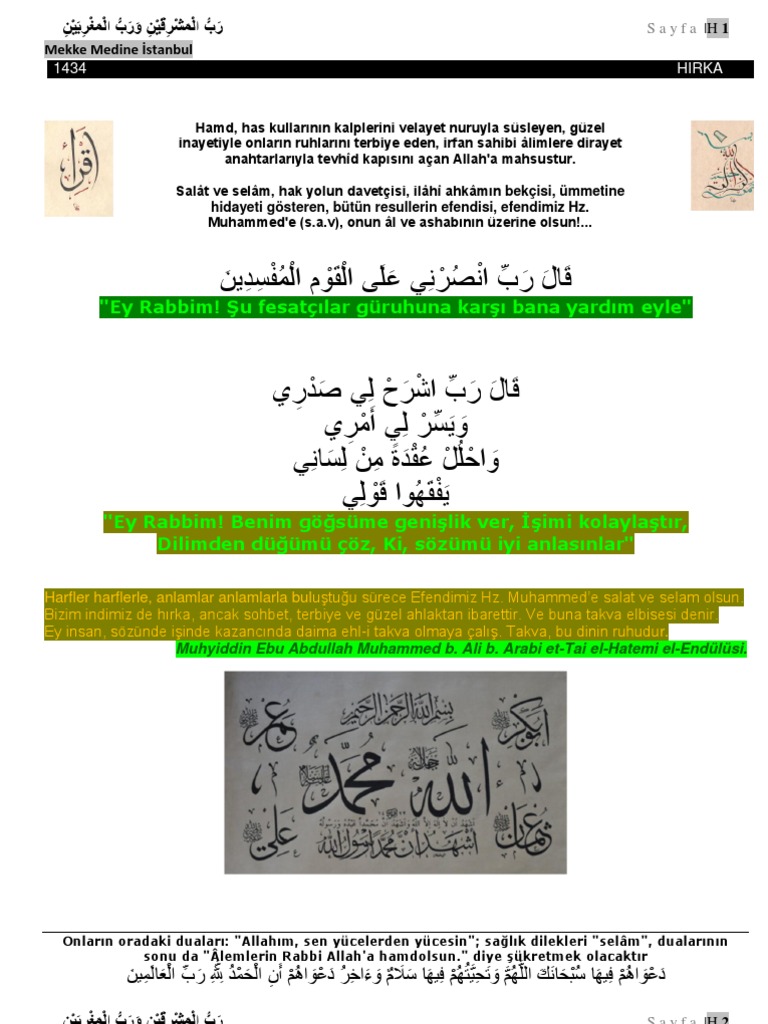 رَبُّ الْمَشْرِقَيْنِ وَرَبُّ الْمَغْرِبَيْنِ
Sayfa |H 1
Mekke Medine İstanbul
1434 HIRKA
Hamd, has kullarının kalplerini velayet nuruyla süsleyen, güzel
inayetiyle onların ruhlarını terbiye eden, irfan sahibi âlimlere dirayet
anahtarlarıyla tevhid kapısını açan Allah'a mahsustur.
Salât ve selâm, hak yolun davetçisi, ilâhî ahkâmın bekçisi, ümmetine
hidayeti gösteren, bütün resullerin efendisi, efendimiz Hz.
Muhammed'e (s.a.v), onun âl ve ashabının üzerine olsun!...
اقرأ
قَالَ رَبِّ انْصُرْنِي عَلَى الْقَوْمِ الْمُفْسِدِينَ
"Ey Rabbim! Şu fesatçılar güruhuna karşı bana yardım eyle"
قَالَ رَبِّ اشْرَحْ لِي صَدْرِي
وَيَسِّرْ لِي أَمْرِي
وَاحْلُلْ عُقْدَةً مِنْ لِسَانِي
يَفْقَهُوا قَوْلِي
"Ey Rabbim! Benim göğsüme genişlik ver, İşimi kolaylaştır,
Dilimden düğümü çöz, Ki, sözümü iyi anlasınlar"
Harfler harflerle, anlamlar anlamlarla buluştuğu sürece Efendimiz Hz. Muhammed'e salat ve selam olsun.
Bizim indimiz de hırka, ancak sohbet, terbiye ve güzel ahlaktan ibarettir. Ve buna takva elbisesi denir.
Ey insan, sözünde işinde kazancında daima ehl-i takva olmaya çalış. Takva, bu dinin ruhudur.
Muhyiddin Ebu Abdullah Muhammed b. Ali b. Arabi et-Tai el-Hatemi el-Endülüsi.
بسم الله الرحمن الرحيم
ابوبكر
عمر
الله
محمد
عثمان
علي
اشهد ان لا اله الا الله
اشهد ان محمدا رسول الله
Onların oradaki duaları: "Allahım, sen yücelerden yücesin"; sağlık dilekleri "selâm", dualarının
sonu da "Âlemlerin Rabbi Allah'a hamdolsun." diye şükretmek olacaktır
دَعْوَاهُمْ فِيهَا سُبْحَانَكَ اللَّهُمَّ وَتَحِيَّتُهُمْ فِيهَا سَلَامٌ وَءَاخِرُ دَعْوَاهُمْ أَنِ الْحَمْدُ لِلَّهِ رَبِّ الْعَالَمِينَ
رَبُّ الْمَشْرِقَيْنِ وَرَبُّ الْمَغْرِبَيْنِ
Sayfa |H 2